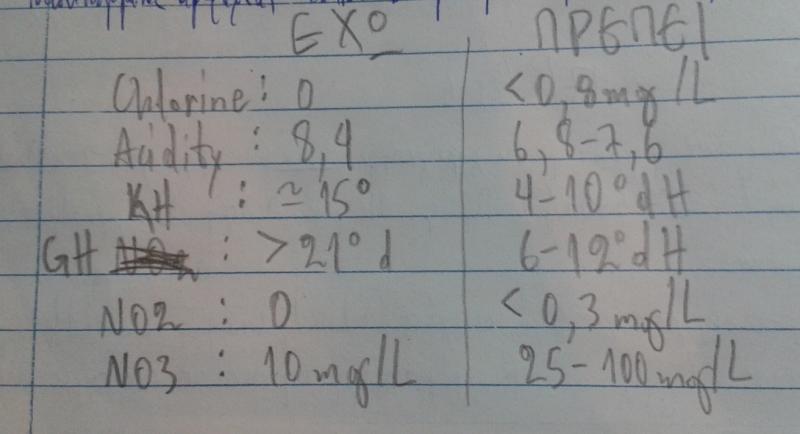 ΕΧΟ ΠΡΕΠΕΙ
Chlorine: 0 <0,8mg/L
Acidity: 8,4 6,8-7,6
KH : ≃15° 4-10°dH
GH : >21°d 6-12°dH
NO2 : 0 <0,3mg/L
NO3 : 10mg/L 25-100mg/L